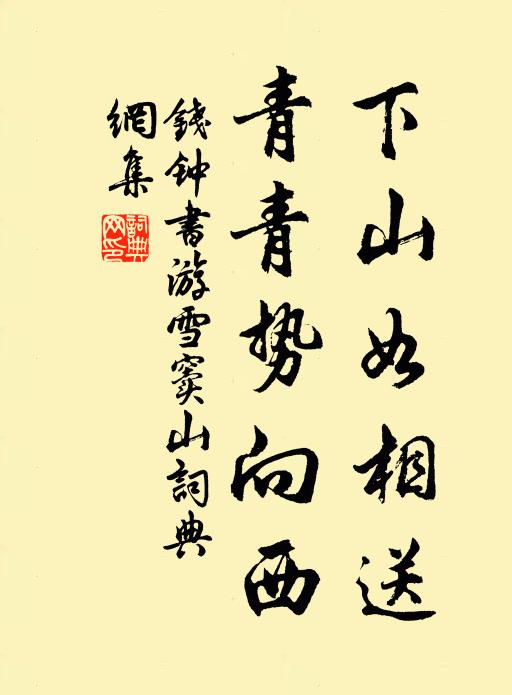 下山如相送
青青势向西
錢钟書游雪窦山詞典
網集
詞典
网印